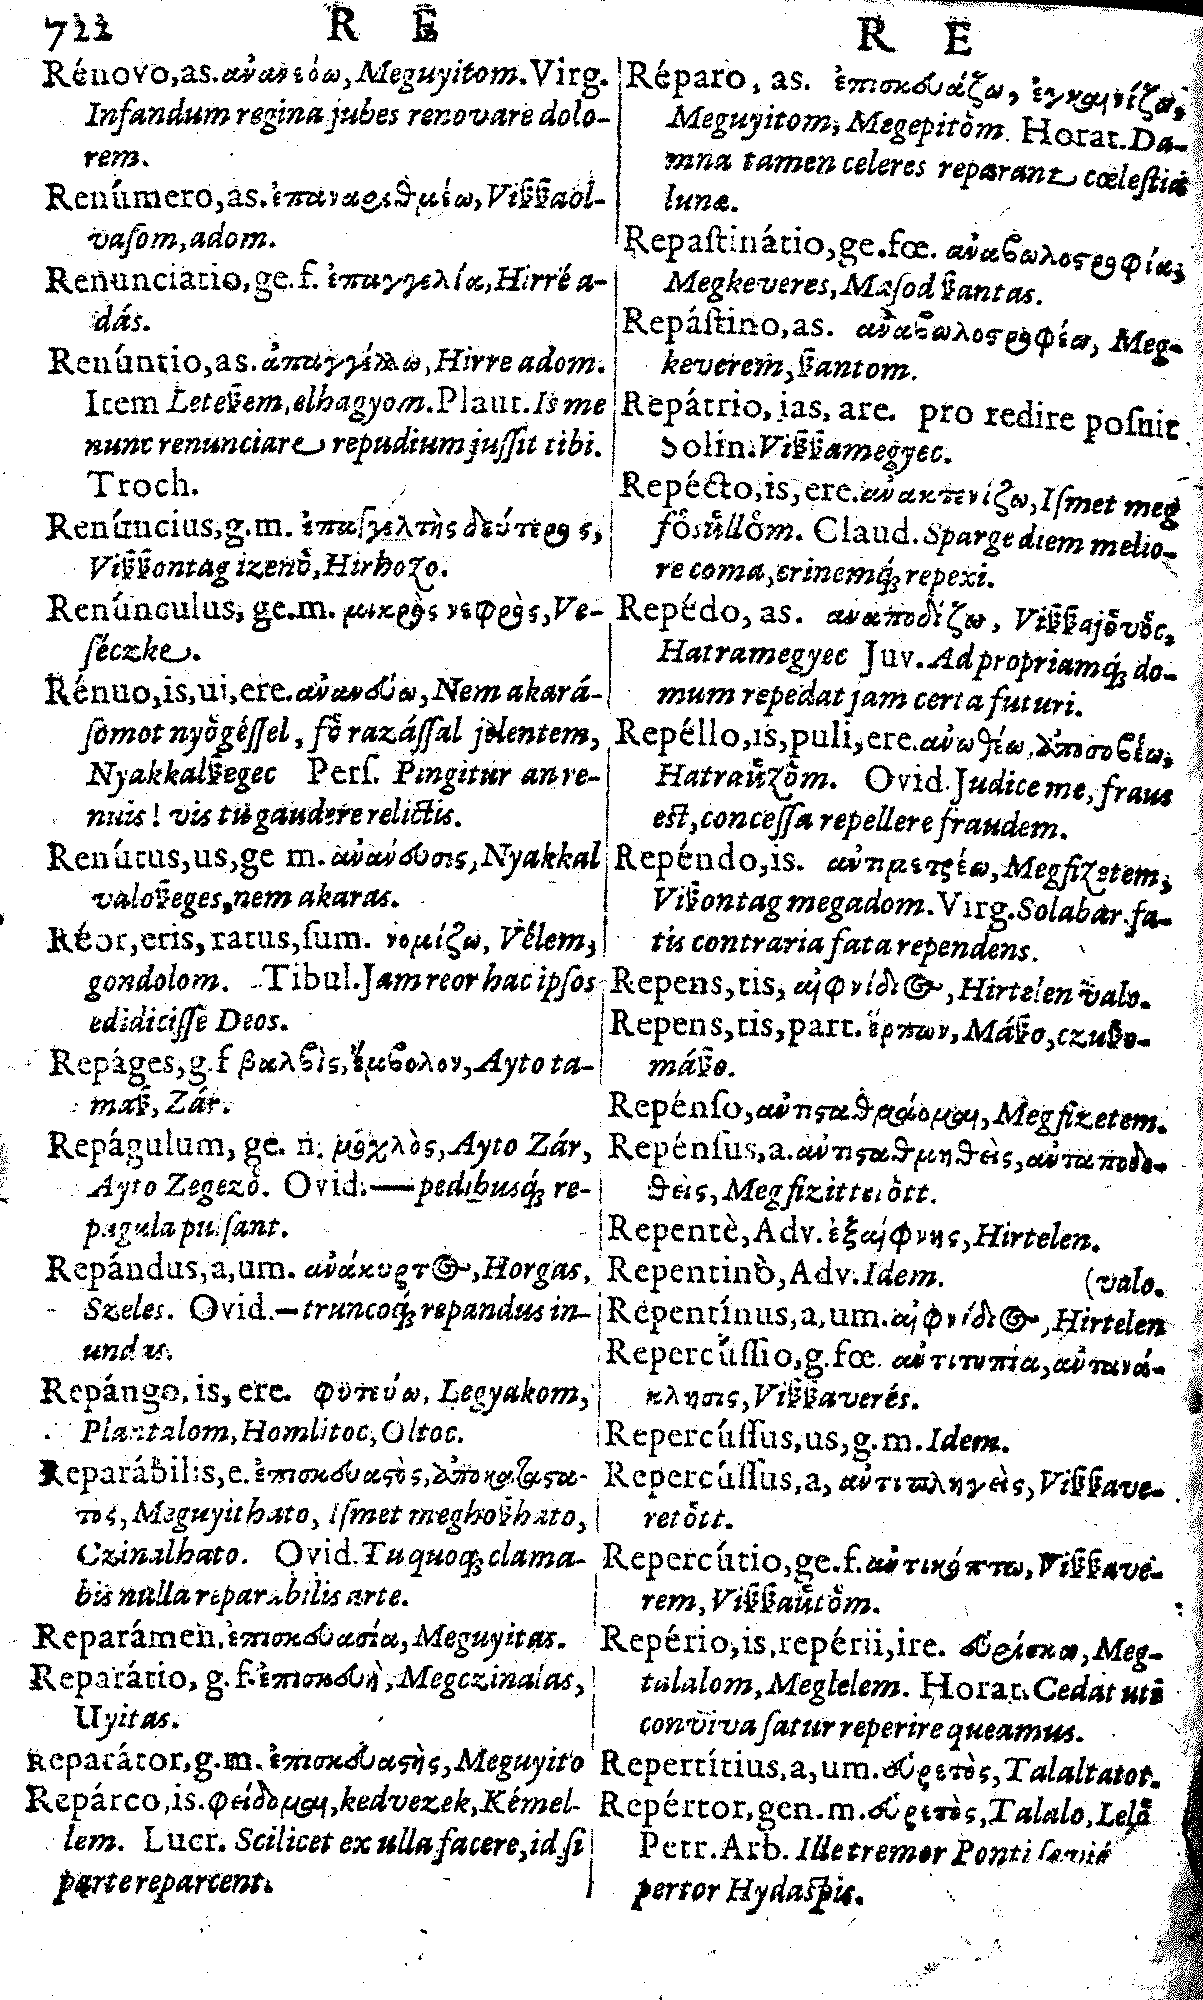 722 R E
Rénovo, as. ἀνανεόω, Meguyitom. Virg.
Infandum regina jubes renovare dolo-
rem.
Renúmero, as. ἐπαναριθμέω, Viſſaol-
vaſom, adom.
Renunciatio, ge. f. ἐπαγγελία, Hirré a-
dás.
Renúntio, as. ἀπαγγέλλω, Hirre adom.
Item elhagyom. Plaut. Is me
nunc renunciare repudium juſſit tibi.
Troch.
Renúncius, g. m. δεύτερος,
izenő, Hirhozo.
Renúnculus, ge. m. μικρὸς νεφρὸς, Ve-
ſéczke.
Rénuo, is, ui, ere. ἀνανεύω, Nem akará-
ſomot nyőgéſſel, fő razáſſal jelentem,
Perſ. Pingitur an re-
nuis! vis tu gaudere relictis.
Renútus, us, ge m. ἀνάνευσις, Nyakkal
nem akaras.
Réor, eris, ratus, ſum. νομίζω, Vélem,
gondolom. Tibul. Jam reor hac ipſos
edidiciſſe Deos.
Repáges, g. f βαλβὶς, ἔμβολον, Ayto ta-
Zár.
Repágulum, ge. n. μοχλὸς, Ayto Zár,
Ayto Zegező. Ovid. — pedibusq; re-
pagula pulſant.
Repándus, a, um. ἀνάκυρτος, Horgas,
Szeles. Ovid. — truncoq; repandus in-
undis.
Repángo, is, ere. φυτεύω, Legyakom,
Plantalom, Homlitoc, Oltoc.
Reparábilis, e. ἐπισκευαςὸς, ἀποκαταςα-
τος, Meguyithato, iſmet
Czinalhato. Ovid. Tu quoq; clama-
bis nulla reparabilis arte.
Reparámen. ἐπισκευασία, Meguyitas.
Reparátio, g. f. ἐπισκευὴ, Megczinalas,
Uyitas.
Reparátor, g. m. ἐπισκευαςὴς, Meguyito
Repárco, is. φείδομαι, kedvezek, Kémel-
lem. Lucr. Scilicet ex ulla facere, id ſi
parte reparcent.
R E
Réparo, as. ἐπισκευάζω, ἐγκαινίζω,
Meguyitom, Megepitőm. Horat. Da-
mna tamen celeres reparant cœleſtia
lunæ.
Repaſtinátio, ge. fœ. ἀναβωλοςροφία,
Megkeveres,
Repáſtino, as. ἀναβωλοςροφέω, Meg-
keverem,
Repátrio, ias, are. pro redire poſuit
Solin.
Repécto, is, ere. ἀνακτενίζω, Iſmet meg
főſűllőm. Claud. Sparge diem melio-
re coma, crinemq; repexi.
Repédo, as. ἀναποδίζω,
Hatramegyec Juv. Ad propriamq; do-
mum repedat jam certa futuri.
Repéllo, is, puli, ere. ἀνωθέω, ἀποσοβέω,
Ovid. Judice me, fraus
eſt, conceſſa repellere fraudem.
Repéndo, is. ἀντιμετρέω, Megfizetem,
megadom. Virg. Solabar fa-
tis contraria fata rependens.
Repens, tis, αἰφνίδιος, Hirtelen valo.
Repens, tis, part. ἕρπων,

Repénſo, ἀντιςαθμάομαι, Megfizetem.
Repénſus, a. ἀντιςαθμηθεὶς, ἀνταποδο-
θεὶς, Megfizittetőtt.
Repentè, Adv. ἐξαίφνης, Hirtelen.
Repentinò, Adv. Idem. (valo.
Repentínus, a, um. αἰφνίδιος, Hirtelen
Repercúſſio, g. fœ. ἀντιτυπία, ἀντανά-
κλησις,
Repercúſſus, us, g. m. Idem.
Repercúſſus, a, ἀντιπληγεὶς,
retőtt.
Repercútio, ge. f. ἀντικόπτω,
rem,
Repério, is, repérii, ire. εὑρίσκω, Meg-
talalom, Meglelem. Horat. Cedat uti
conviva ſatur reperire queamus.
Repertítius, a, um. εὑρετὸς, Talaltatot.
Repértor, gen. m. εὑρετὸς, Talalo, Lelő
Petr. Arb. Ille tremor Ponti
pertor Hydaſpis.